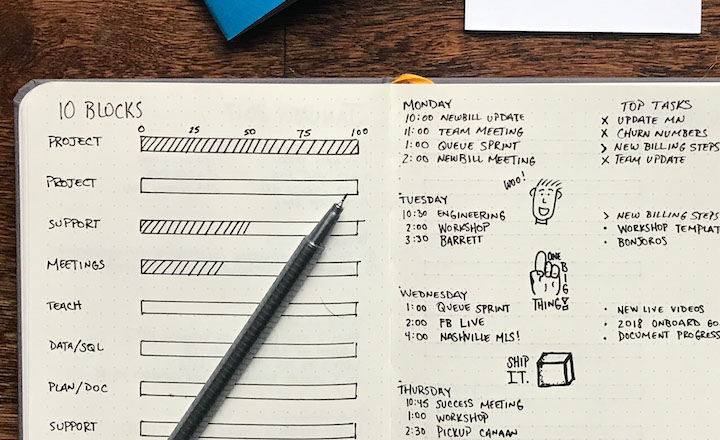 10 BLOCKS
0 25 50 75 100
PROJECT
PROJECT
SUPPORT
MEETINGS
TEACH
DATA/SQL
PLAN/DOC
SUPPORT
MONDAY
10:00 NEWBILL UPDATE
11:00 TEAM MEETING
1:00 QUEUE SPRINT
2:00 NEWBILL MEETING
TOP TASKS
X UPDATE MN
X CHURN NUMBERS
> NEW BILLING STEPS
X TEAM UPDATE
WOO!
TUESDAY
10:30 ENGINEERING
2:00 WORKSHOP
3:30 BARRETT
> NEW BILLING STEPS
• WORKSHOP TEMPLAT
• BONJOROS
ONE
BIG
THING!
WEDNESDAY
1:00 QUEUE SPRINT
2:00 FB LIVE
4:00 NASHVILLE MLS!
• NEW LIVE VIDEOS
• 2018 ONBOARD
• DOCUMENT PROGRESS
SHIP
IT.
THURSDAY
10:45 SUCCESS MEETING
1:00 WORKSHOP
2:30 PICKUP CANAAN